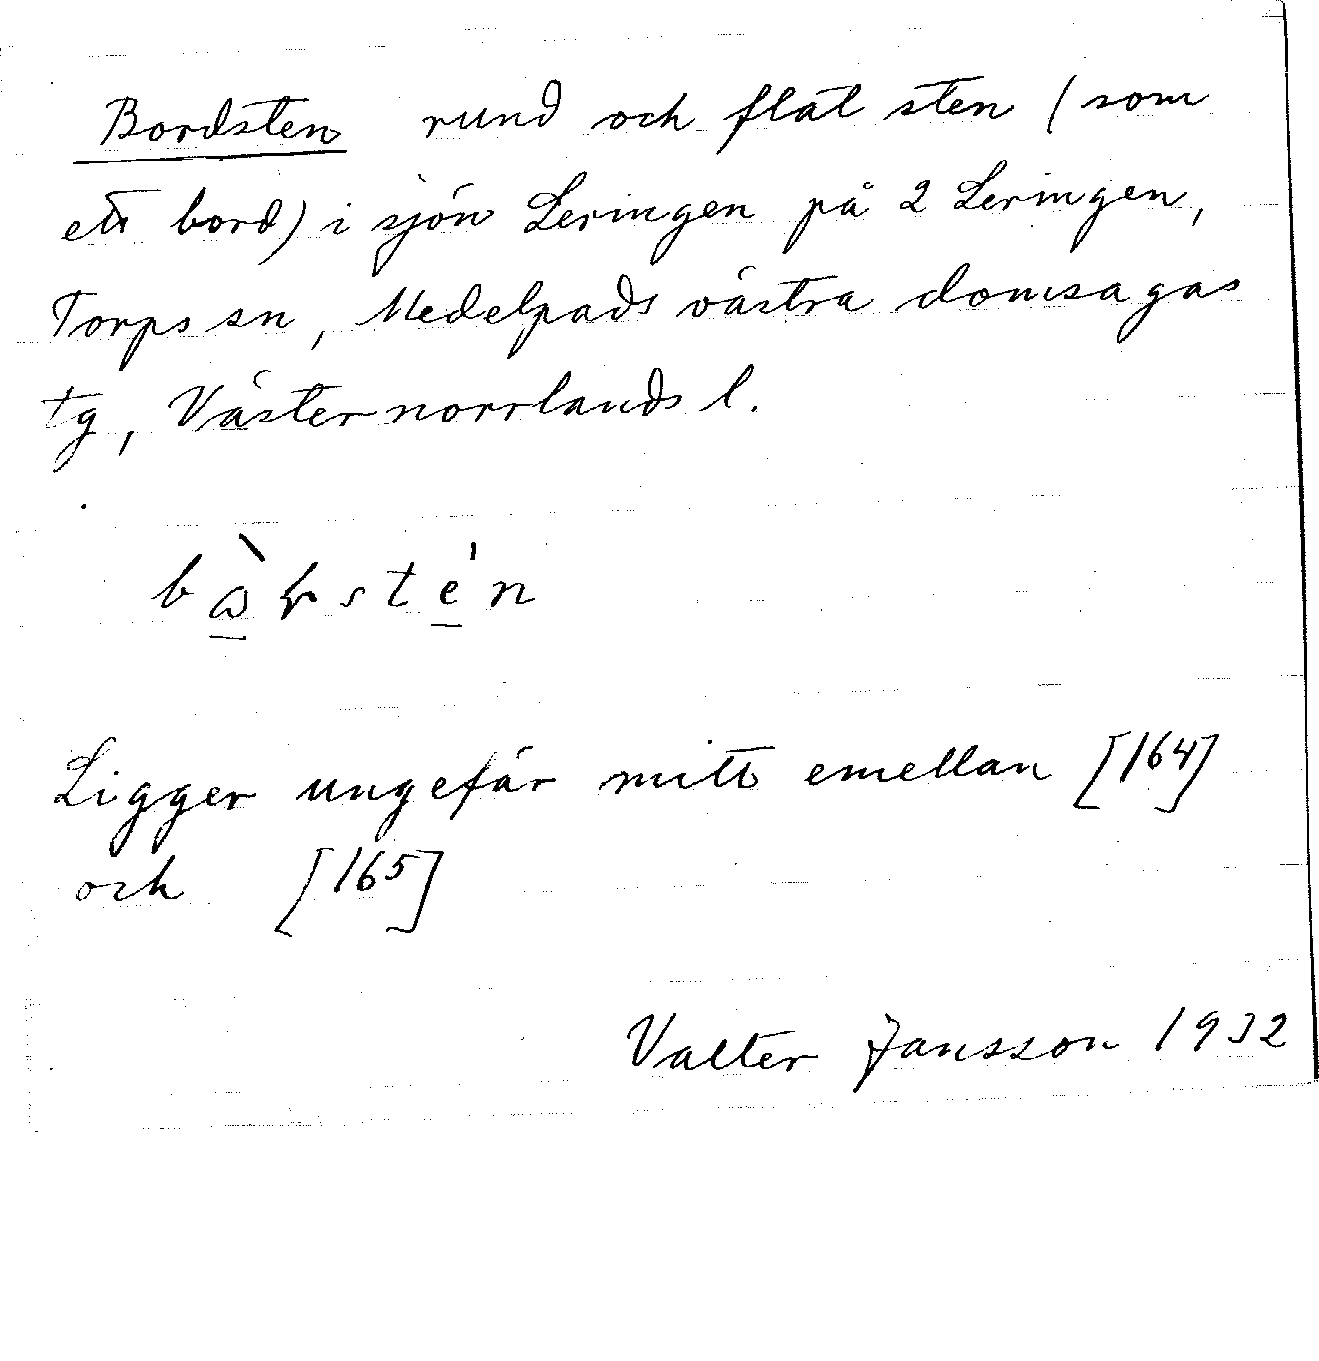 Bordsten rund och flat sten (som
ett bord) i sjön Leringen på 2 Leringen,
Torps sn, Medelpads västra domsagas
tg, Västernorrlands l.
Ligger ungefär mitt emellan [164]
och [165]
Valter Jansson 1932